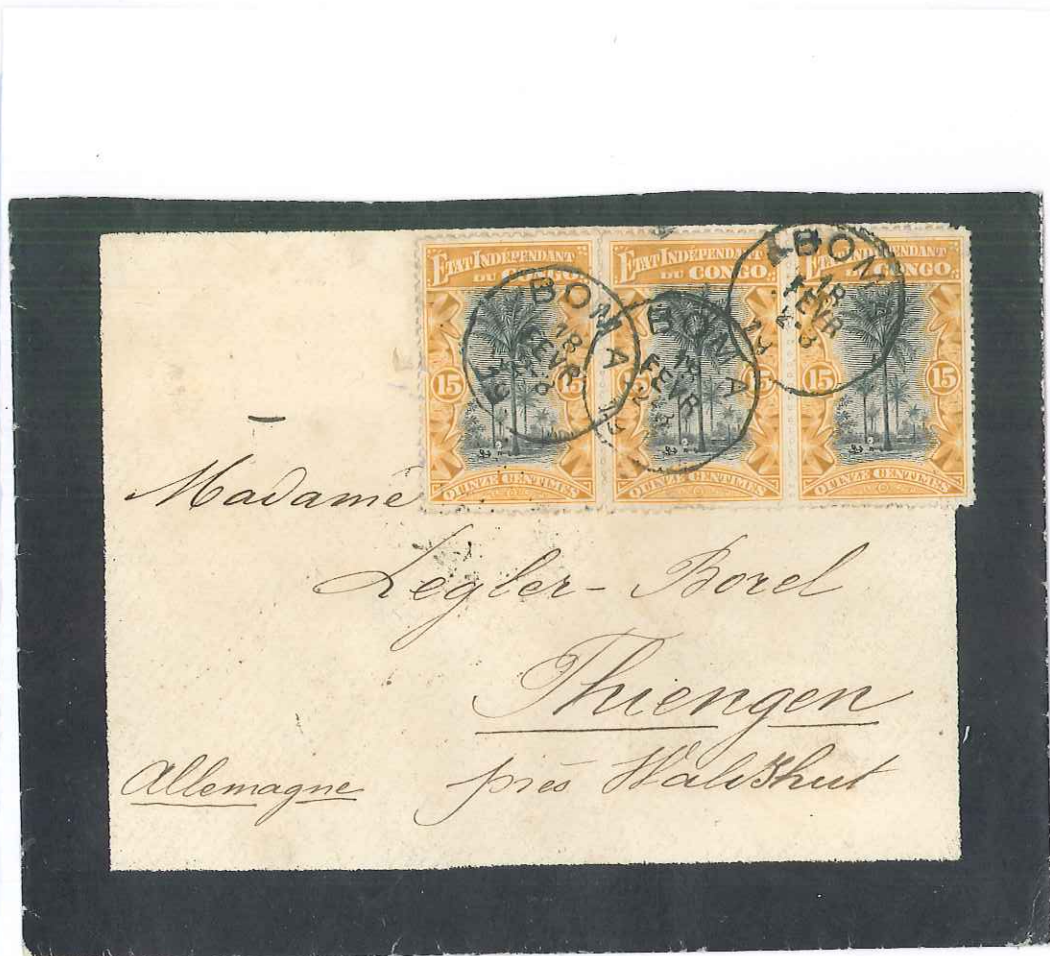 ETAT INDÉPENDANT DU CONGO
15 15
QUINZE CENTIMES
ETAT INDÉPENDANT DU CONGO
QUINZE CENTIMES
ETAT INDÉPENDANT DU CONGO
15 15
QUINZE CENTIMES
BOMA
18
FEVR
BOMA
18
FEVR
BOM
18
FEVR
Madame
Legler-Borel
Thiengen
près Waldshut
Allemagne